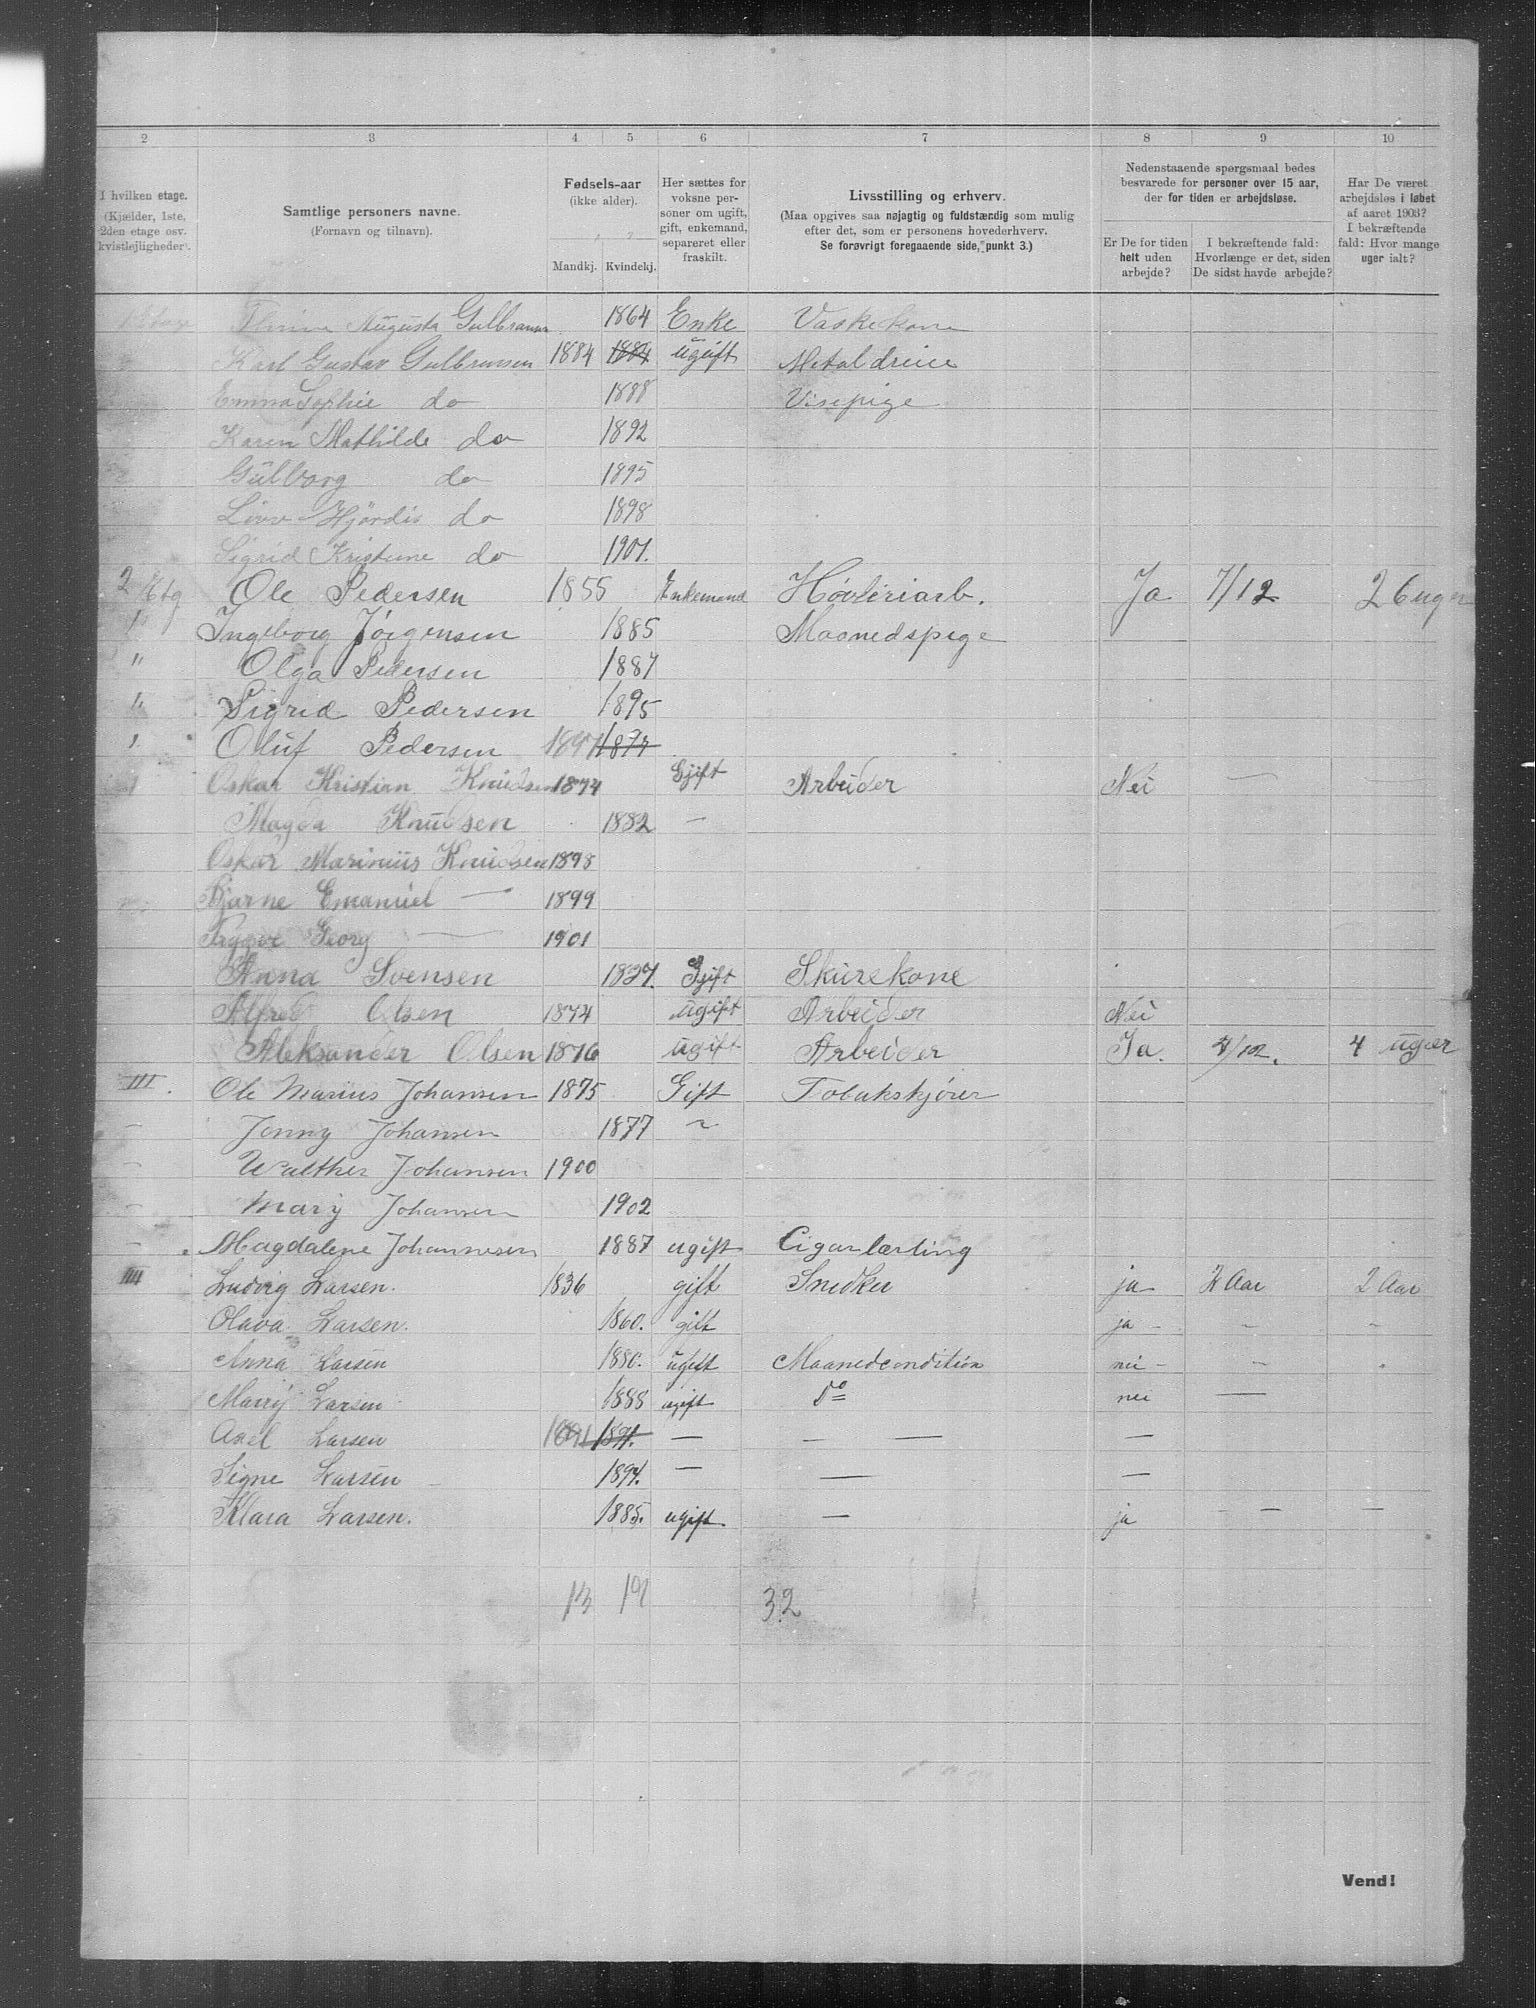 2 3 4 5 6 7 8 9 10
I hvilken etage. (Kjælder, 1ste, 2den etage osv. kvistlejligheder).
Samtlige personers navne. (Fornavn og tilnavn).
Fødsels-aar (ikke alder). Mandkj. Kvindekj.
Her sættes for voksne personer om ugift, gift, enkemand, separeret eller fraskilt.
Livsstilling og erhverv. (Maa opgives saa nøjagtig og fuldstændig som mulig efter det, som er personens hovederhverv. Se forøvrigt foregaaende side, punkt 3.)
Nedenstaaende spørgsmaal bedes besvarede for personer over 15 aar, der for tiden er arbejdsløse.
Er De for tiden helt uden arbejde?
I bekræftende fald: Hvorlænge er det, siden De sidst havde arbejde?
Har De været arbejdsløs i løbet af aaret 1903? I bekræftende fald: Hvor mange uger ialt?
Augusta Gulbransen 1864 Enke Vaskekone
Karl Gustav Gulbransen 1884 1884 ugift Metaldreier
Emma Sophie do 1888 Visepige
Karen Mathilde do 1892
Gulborg do 1895
Hjørdis do 1898
Sigrid Kristine do 1901.
2 Etg Ole Pedersen 1855 Enkemand Høvleriarb. Ja 7/12 26 uger
" Ingeborg Jørgensen 1885 Maanedspige
" Olga Pedersen 1887
" Sigrid Pedersen 1895
" Oluf Pedersen
Oskar Kristian Knudsen 1874 Gjift Arbeider Nei — —
Magda Knudsen 1882 —
Oskar Marinius Knudsen 1898
Bjarne Emanuel — 1899
Trygve Georg — 1901
Anna Svensen 1827. Gjift Skurekone
Alfred Olsen 1874 ugift Arbeider Nei
Aleksander Olsen 1876 ugift Arbeider Ja. 4 uger
III. Ole Marius Johansen 1875 Gift Tobakskjører
– Jonny Johansen 1877 ~
– Walther Johansen 1900
– Mary Johansen 1902
– Magdalene Johannesen 1887 ugift Cigarlærling
IIII Ludvig Larsen. 1836 gift Snedker ja 2 Aar 2 Aar
Olava Larsen. 1860. gift ja – – –
Anna Larsen 1880. ugift Maanedcondition nei – –
Marry Larsen 1888 ugift do nei —
Axel Larsen 1891 1891. — — — —
Signe Larsen – 1894. — — —
Klara Larsen. 1885. ugift. — ja – – —
13 19 32
Vend!